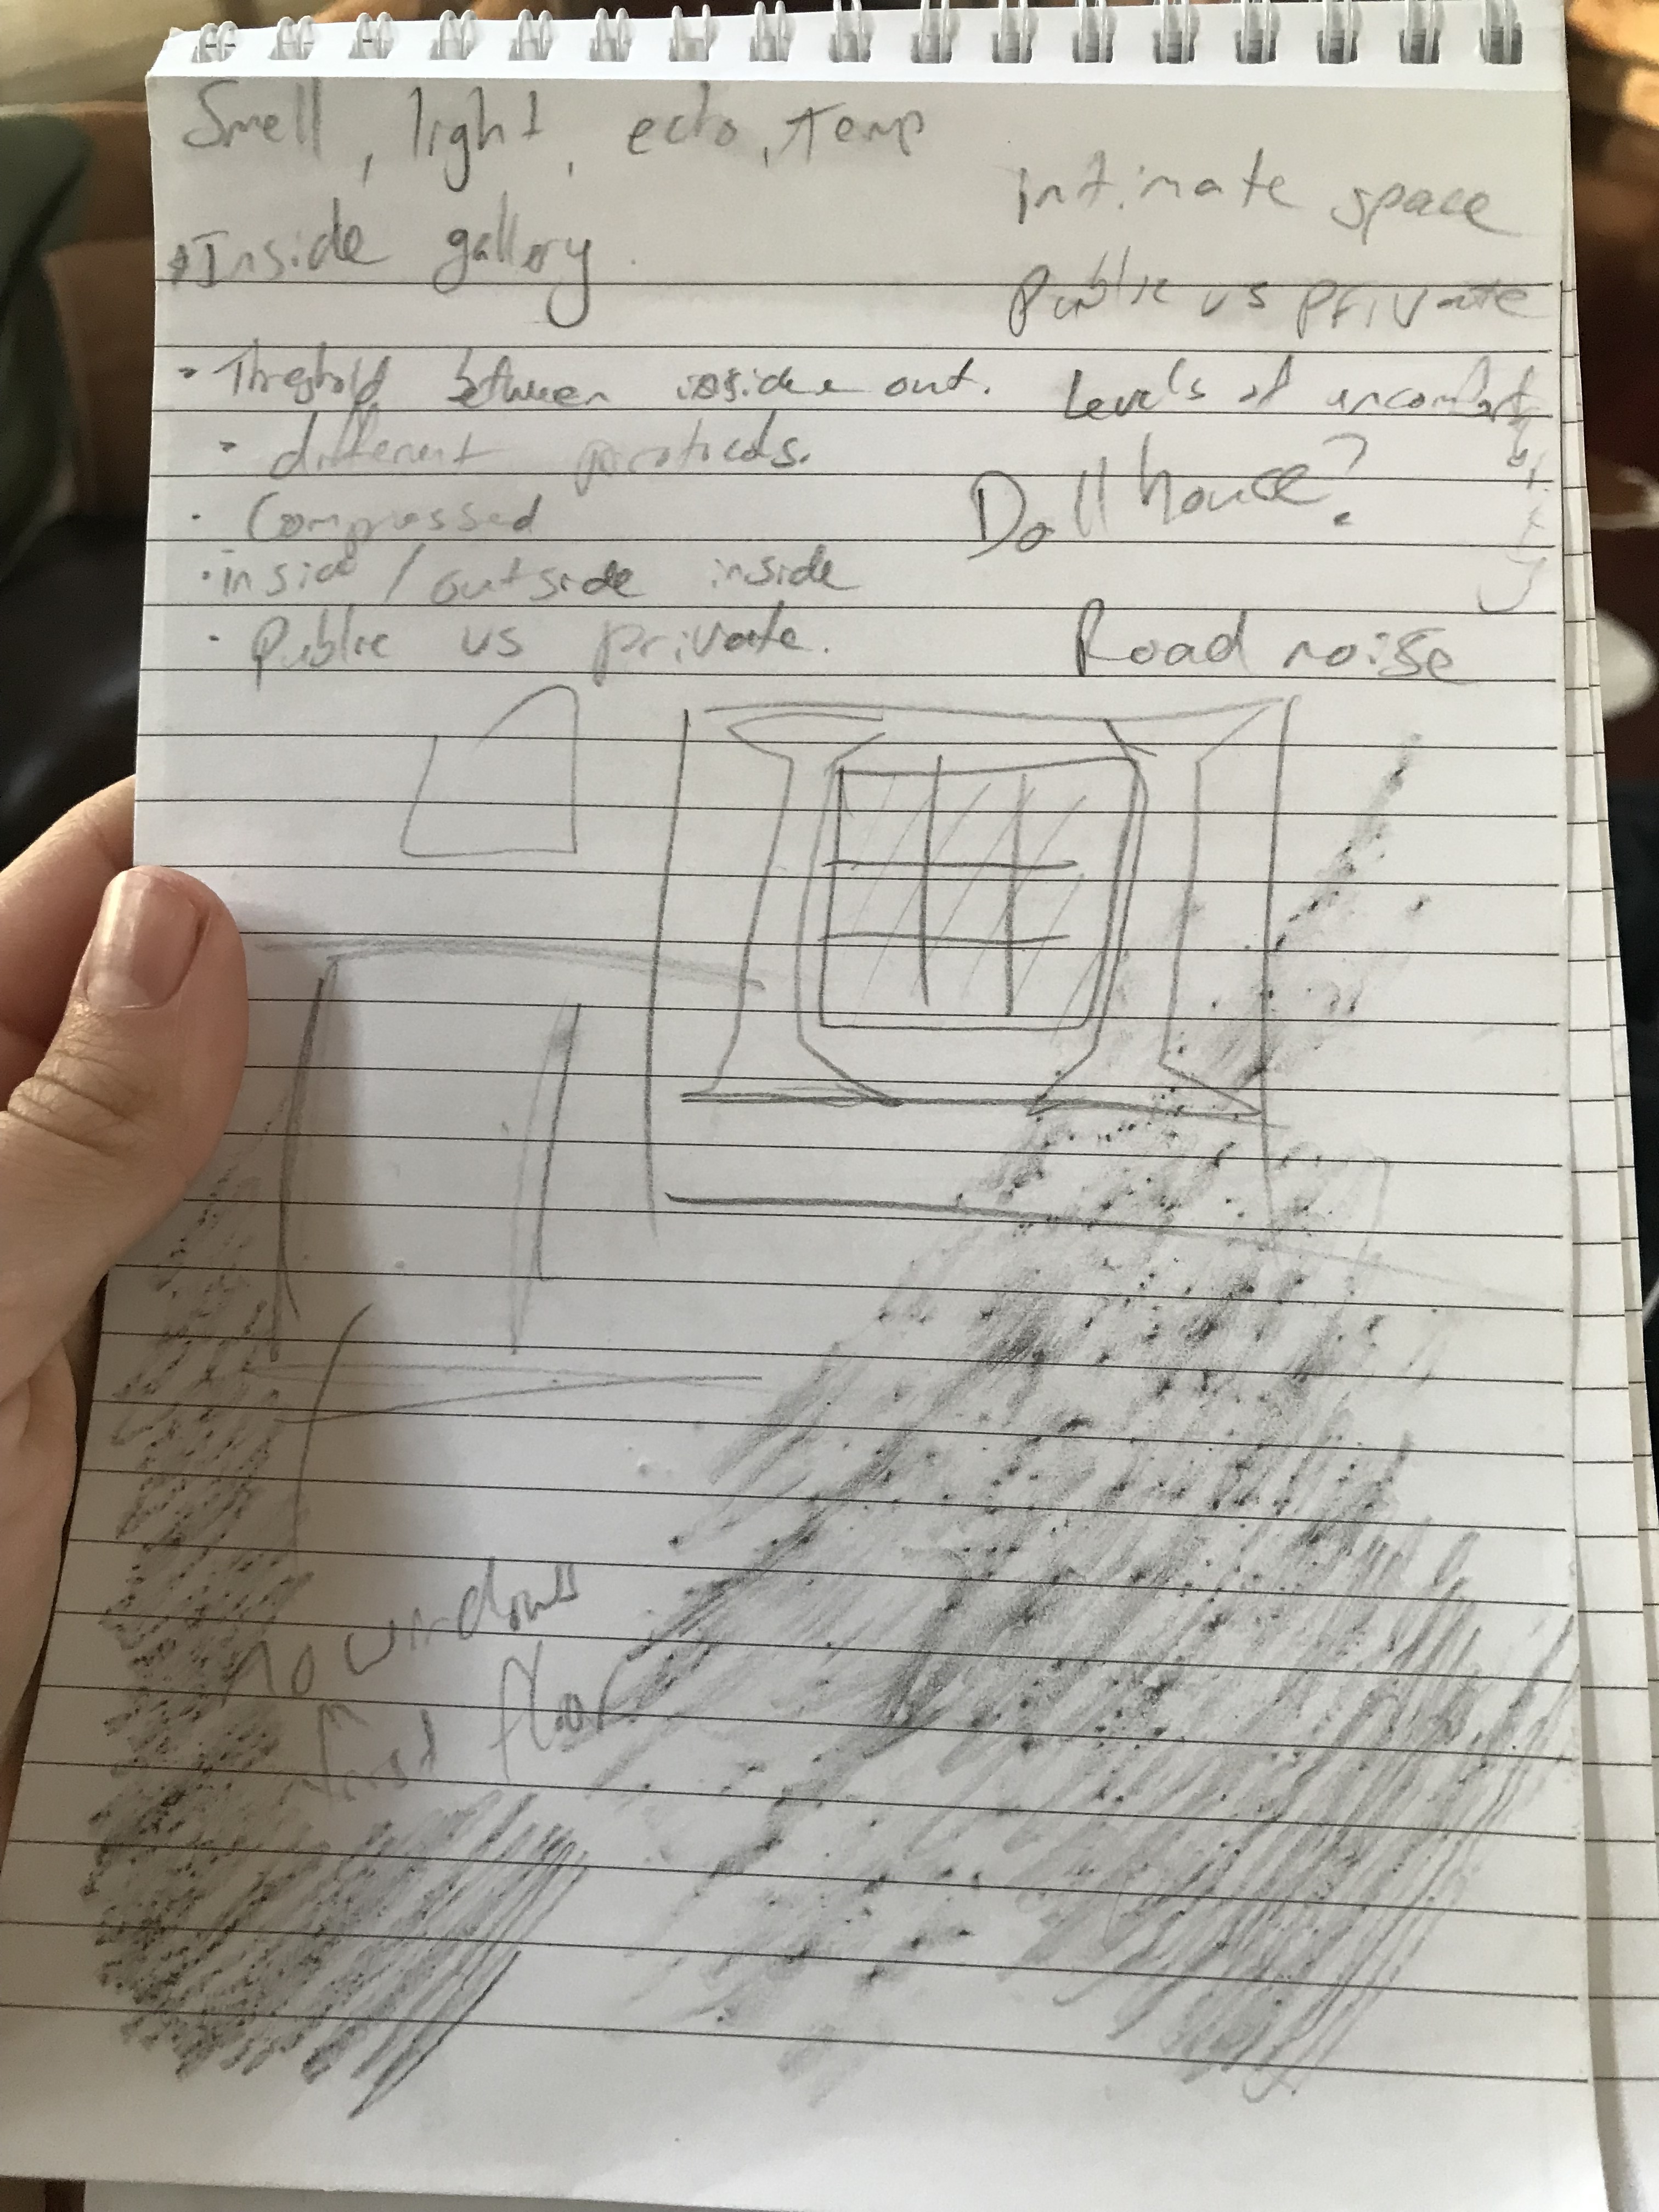 Smell, light, echo, temp
Inside gallery.
• Threshold between inside e out.
• different protocols.
• Compressed
• inside / outside inside
• Public vs private.
intimate space
Public vs private
Levels of uncomfort
Doll house?
Road noise
no windows
first floor